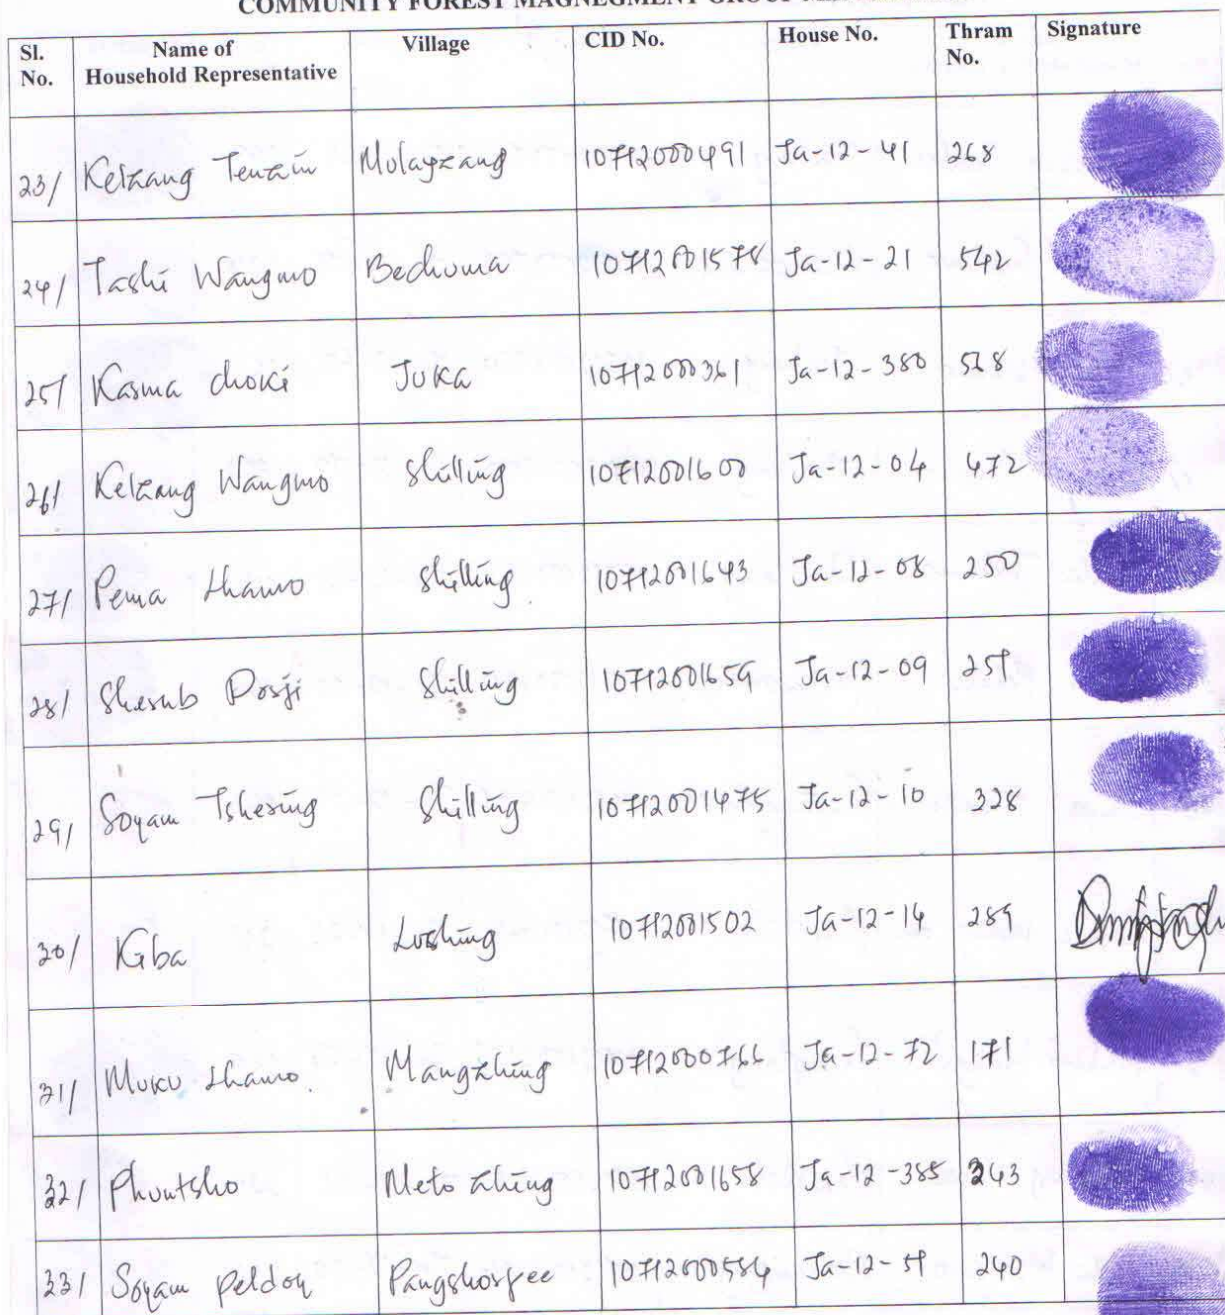 COMMUNITY FOREST MAGNEGMENT GROUP
Sl. No. Name of Household Representative Village CID No. House No. Thram No. Signature
23/ Kelzang Tenzin Molayzang 10712000491 Ja-12-41 268
24/ Tashi Wangmo Bechuma 10712001578 Ja-12-21 542
25/ Karma choki Juka 10712000361 Ja-12-380 528
26/ Kelzang Wangmo Shilling 10712001600 Ja-12-04 472
27/ Pema Lhamo Shilling 10712001643 Ja-12-08 250
28/ Sherub Dorji Shilling 10712001659 Ja-12-09 259
29/ Sonam Tshering Shilling 10712001475 Ja-12-10 328
30/ Kiba Loshing 10712001502 Ja-12-14 289
31/ Muku Lhamo Mangzhing 10712000766 Ja-12-72 171
32/ Phuntsho Metozhing 10712001658 Ja-12-385 243
33/ Sonam Peldon Pangshorfee 10712000584 Ja-12-59 240